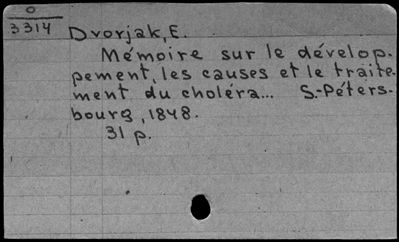 0
3314
Dvorjak, E.
Mémoire sur le dévelop-
pement, les causes et le traite-
ment du choléra... S.-Péters-
bourg, 1848.
31 p.